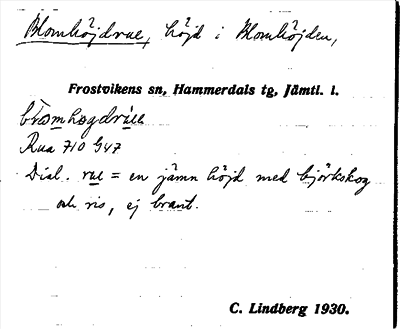 Blomhöjdrue, höjd i Blomhöjden,
Frostvikens sn, Hammerdals tg, Jämtl. l.
Rua 710 947
Dial. rue = en jämn höjd med björkskog
och ris, ej brant.
C. Lindberg 1930.